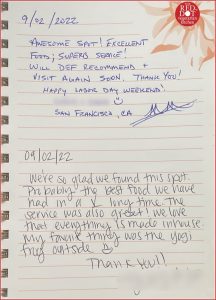 RED HOT
vegetarian
kitchen
9/02/2022
AWESOME SPOT! EXCELLENT
FOOD; SUPERB SERVICE!
WILL DEF RECOMMEND +
VISIT AGAIN SOON, THANK YOU!
HAPPY LABOR DAY WEEKEND!
SAN FRANCISCO, CA
09/02/22
We're so glad we found this spot.
Probably the best food we have
had in a long time. The
service was also great! we love
that everything is made inhouse.
My favorite thing was the yogi
outside
Thank you!!